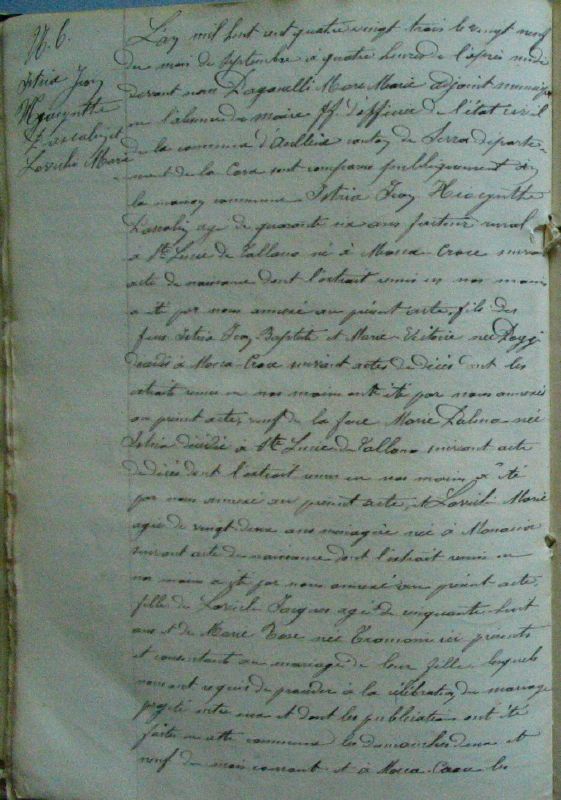 N. 6.
Istria Jean
Hyacinthe
Pascalin et
Lovichi Marie
L'an mil huit cent quatre vingt trois le vingt neuf
du mois de Septembre à quatre heures de l'après midi
devant nous Paganelli Marc Marie adjoint municipal
en l'absence du maire ff. d'officier de l'état civil
de la commune d'Aullène canton de Serra départe-
ment de la Corse sont comparus publiquement en
la maison commune Istria Jean Hiacynthe
Pascalin agé de quarante six ans facteur rural
à Ste Lucie de Tallano né à Moca-Croce suivant
acte de naissance dont l'extrait remis en nos mains
a été par nous annexé au présent acte, fils des
feus Istria Jean Baptiste et Marie Victoire née Poggi
décédés à Moca-Croce suivant actes de décès dont les
extraits remis en nos mains ont été par nous annexés
au présent acte, veuf de la feue Marie Palma née
Istria décédée à Ste Lucie de Tallano suivant acte
de décès dont l'extrait remis en nos mains a été
par nous annexé au présent acte, et Lovichi Marie
agée de vingt deux ans ménagère née à Monacia
suivant acte de naissance dont l'extrait remis en
nos mains a été par nous annexé au présent acte,
fille de Lovichi Jacques agé de cinquante huit
ans et de Marie Rose née Tramoni ici présents
et consentants au mariage de leur fille lesquels
nous ont requis de procéder à la célébration du mariage
projeté entre eux et dont les publications ont été
faites en cette commune les dimanches deux et
neuf du mois courant et à Moca-Croce les